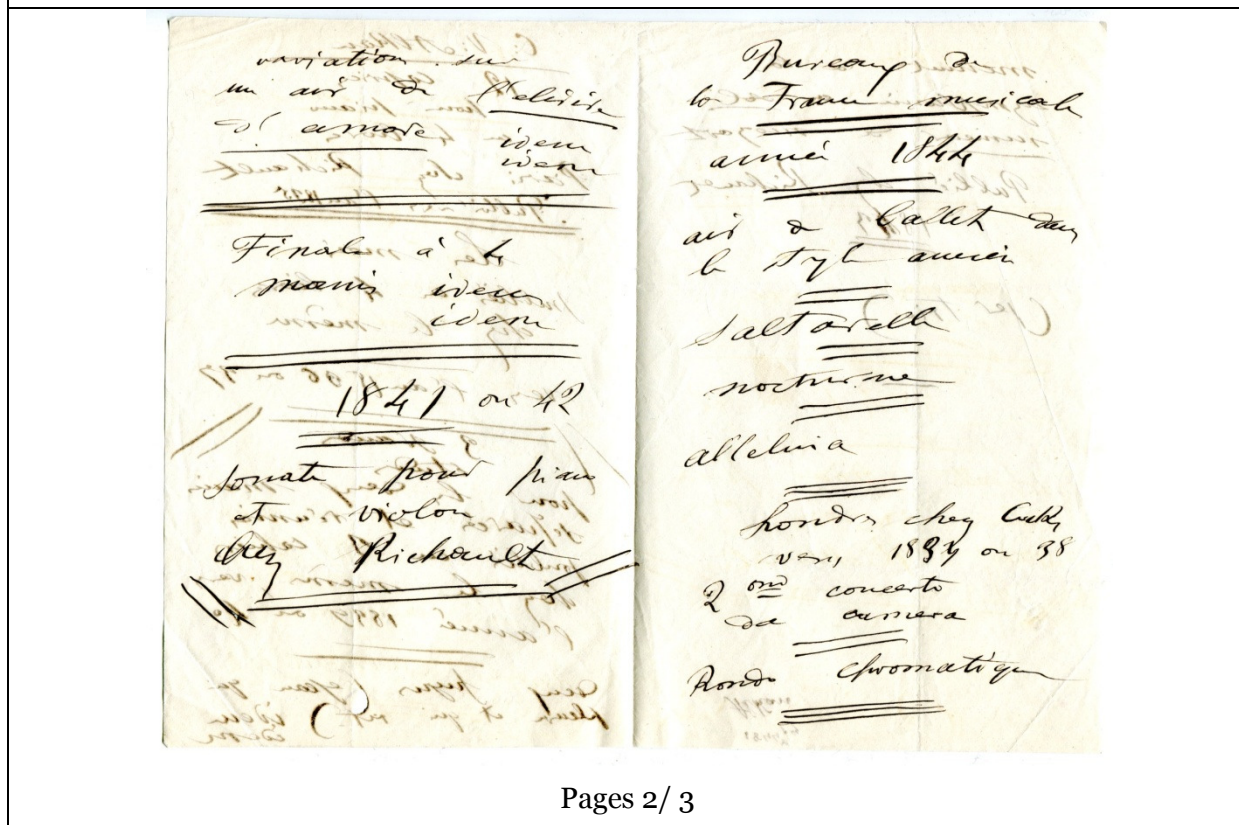 variation sur
un air de l'elisire
d'amore idem
idem
Finale à 4
mains idem
idem
1841 ou 42
Sonate pour piano
et violon
chez Richault
Bureaux de
la France musicale
année 1844
air de ballet dans
le style ancien
Saltarelle
nocturne
alleluia
Londres chez Cocks
vers 1837 ou 38
2 eme concerto
da camera
Rondo chromatique
Pages 2/ 3